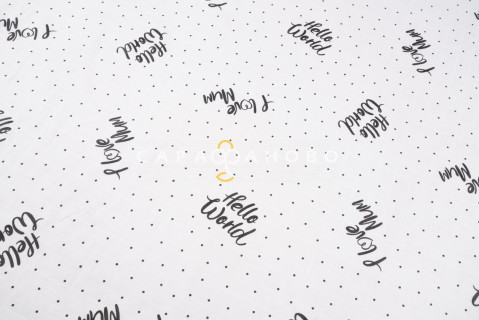 I love
Mum
Hello
World
Hello
World
I love
Mum
I love
Mum
Hello
World
I love
Mum
САРАФАНОВО
Hello
World
I love
Mum
Mum
Hello
World
Mum